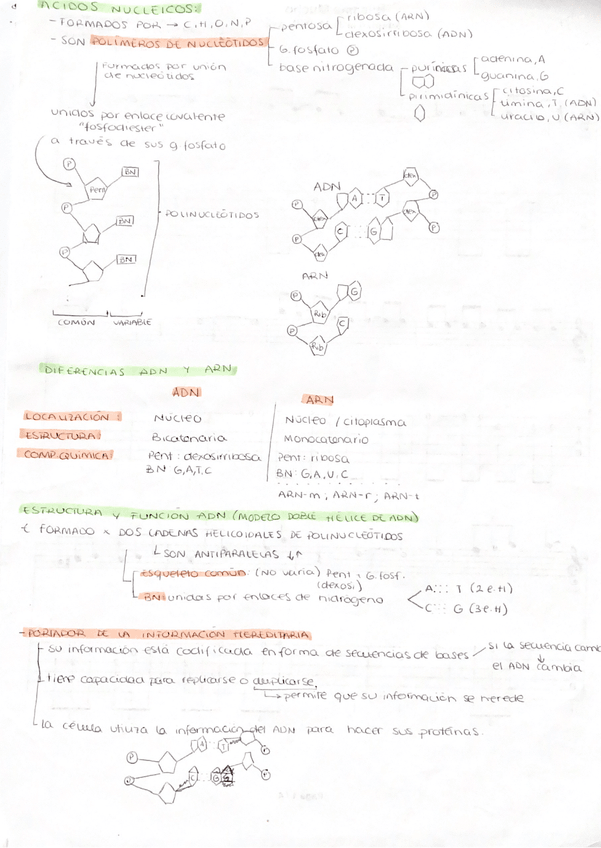 ACIDOS NUCLEICOS:
- FORMADOS POR → C, H, O, N, P
- SON POLÍMEROS DE NUCLEÓTIDOS
pentosa
ribosa (ARN)
dexosirribosa (ADN)
G. fosfato Ⓟ
base nitrogenada
púricas
adenina, A
guanina, G
pirimidínicas
citosina, C
timina, T, (ADN)
uracilo, U (ARN)
Formados por unión
de nucleótidos
unidos por enlace covalente
"fosfodiester"
a través de sus g fosfato
P
Pent
BN
P
BN
P
BN
POLINUCLEÓTIDOS
COMÚN VARIABLE
ADN
P
dex
A
T
dex
P
P
dex
C
G
dex
P
ARN
P
Rib
G
P
Rib
C
DIFERENCIAS ADN Y ARN
ADN
ARN
LOCALIZACIÓN:
Núcleo
Núcleo / citoplasma
ESTRUCTURA:
Bicatenaria
Monocatenario
COMP. QUÍMICA:
Pent: dexosirribosa
Pent: ribosa
BN G, A, T, C
BN: G, A, U, C
ARN-m, ARN-r; ARN-t
ESTRUCTURA Y FUNCIÓN ADN (MODELO DOBLE HÉLICE DE ADN)
FORMADO x DOS CADENAS HELICOIDALES DE POLINUCLEÓTIDOS
SON ANTIPARALELAS ↓↑
Esqueleto común: (NO varía) Pent y G. fosf.
(dexosi)
BN unidas por enlaces de hidrógeno
A::: T (2 e.H)
C::: G (3 e.H)
- PORTADOR DE LA INFORMACIÓN HEREDITARIA
su información está codificada en forma de secuencias de bases
si la secuencia camb
el ADN cambia
tiene capacidad para replicarse o duplicarse,
permite que su información se herede
la célula utiliza la información del ADN para hacer sus proteínas.
P
A
T
P
P
C
G
P